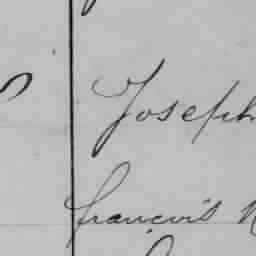 Joseph
françois